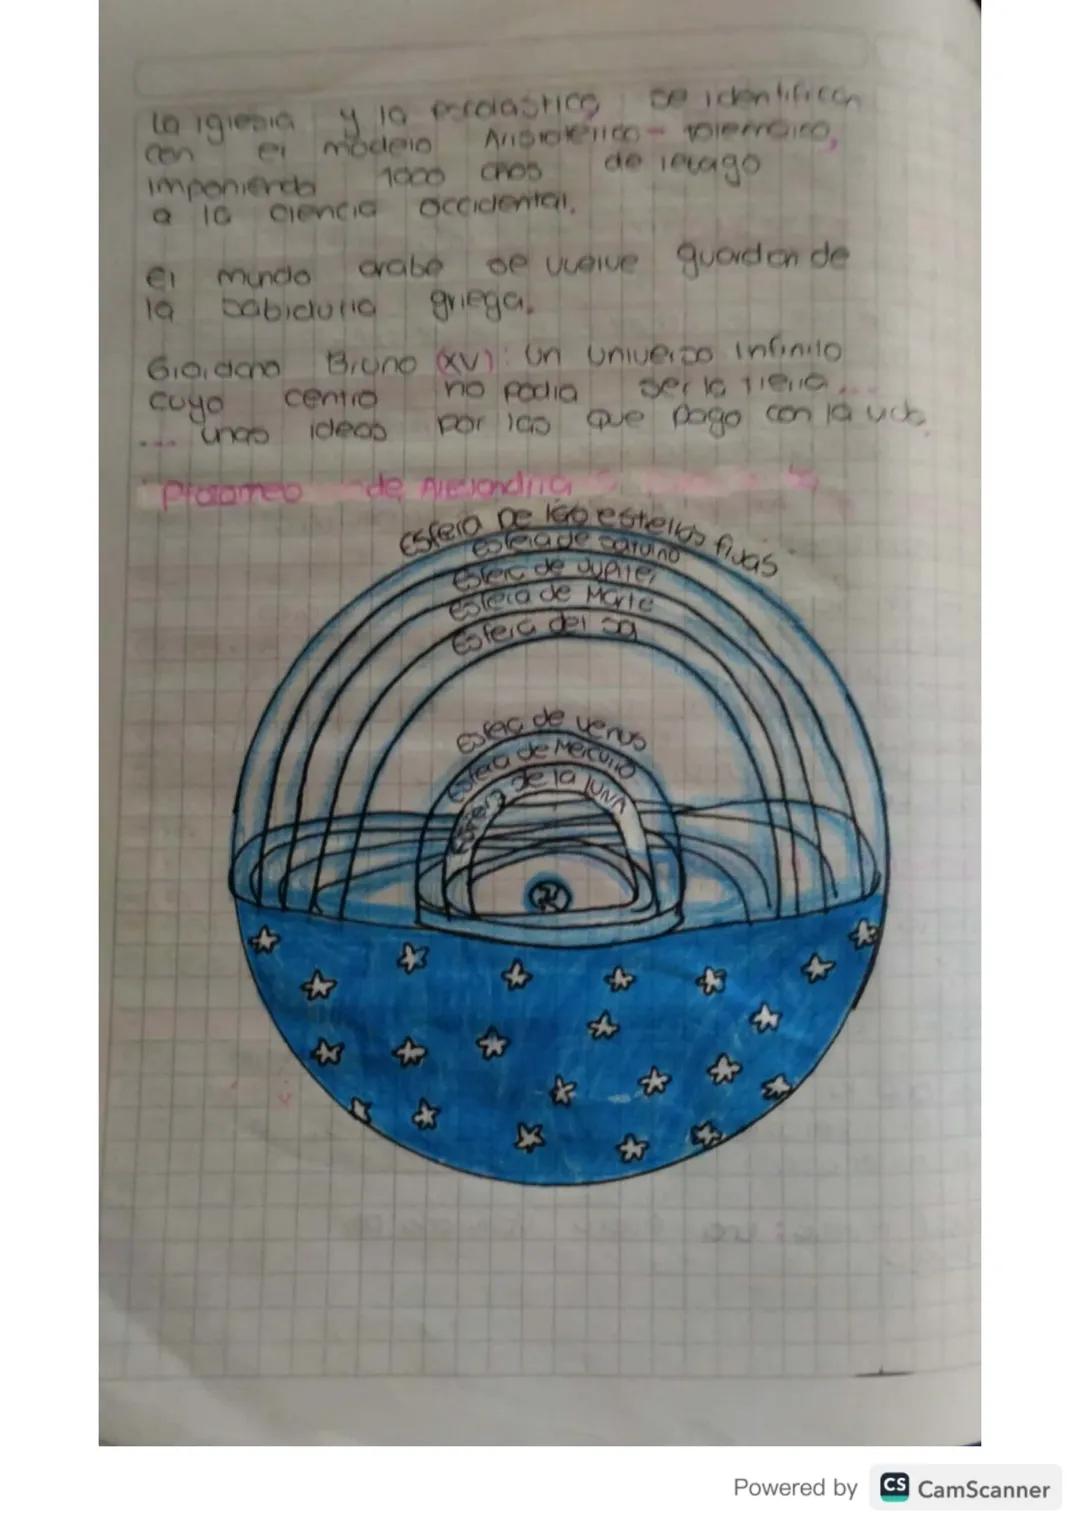 La iglesia y la escolastica se identifican
con el modelo Aristotélico - tolemaico,
imponiendo 1000 años de rezago
a la ciencia occidental.
el mundo arabe se vuelve guardian de
la sabiduria griega.
Giordano Bruno (XV): Un universo infinito
cuyo centro no podia ser la tierra...
... unas ideas por las que pago con la vida.
de Alejandria
Esfera De las estrellas fijas
Esfera de saturno
Esfera de Jupiter
Esfera de Marte
Esfera del sol
Esfera de venus
Esfera de Mercurio
Esfera de la lUNA
Powered by CS CamScanner